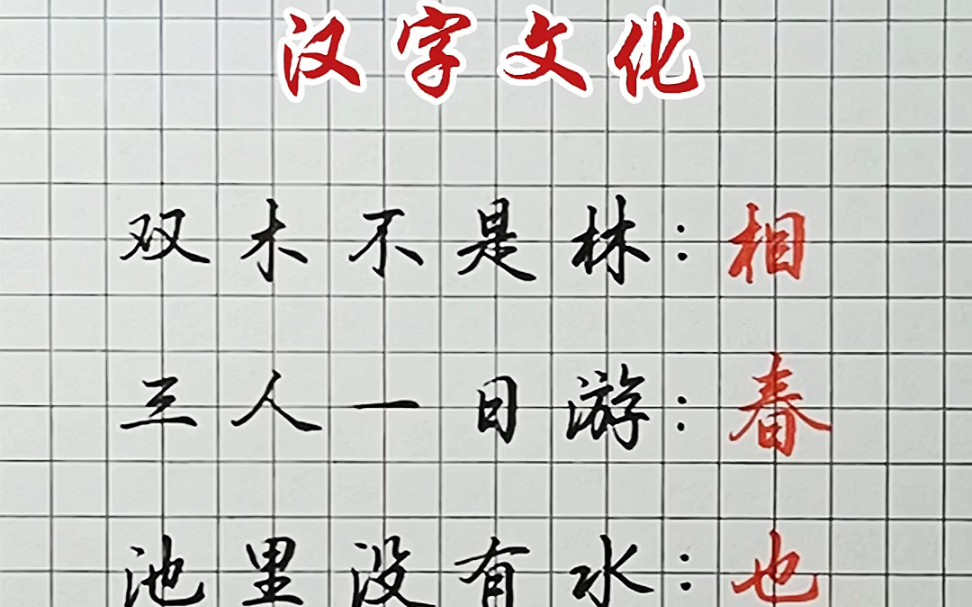 汉字文化
双木不是林：相
三人一日游：春
池里没有水：也